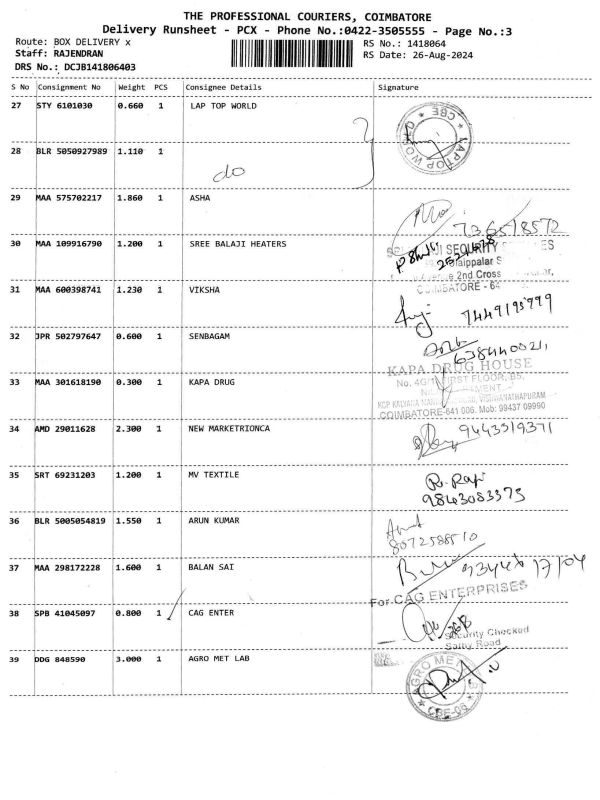 THE PROFESSIONAL COURIERS, COIMBATORE
Delivery Runsheet - PCX - Phone No.:0422-3505555 - Page No.:3
Route: BOX DELIVERY x
RS No.: 1418064
Staff: RAJENDRAN
RS Date: 26-Aug-2024
DRS No.: DCJB141806403
S No Consignment No Weight PCS Consignee Details Signature
27 STY 6101030 0.660 1 LAP TOP WORLD
LAPTOP WORLD * CBE *
28 BLR 5050927989 1.110 1 do
29 MAA 575702217 1.860 1 ASHA
30 MAA 109916790 1.200 1 SREE BALAJI HEATERS
SECURITY
2nd Cross
31 MAA 600398741 1.230 1 VIKSHA
7449195999
32 JPR 502797647 0.600 1 SENBAGAM
33 MAA 301618190 0.300 1 KAPA DRUG
KAPA DRUG HOUSE
FIRST FLOOR,
COIMBATORE-641 006. Mob: 99437 09990
34 AMD 29011628 2.300 1 NEW MARKETRIONCA 9443319371
35 SRT 69231203 1.200 1 MV TEXTILE
9843083373
36 BLR 5005054819 1.550 1 ARUN KUMAR
8072588510
37 MAA 298172228 1.600 1 BALAN SAI
For CAG ENTERPRISES
38 SPB 41045097 0.800 1 CAG ENTER
Security Checked
39 DDG 848590 3.000 1 AGRO MET LAB
AGRO MET
* CBE-06 *